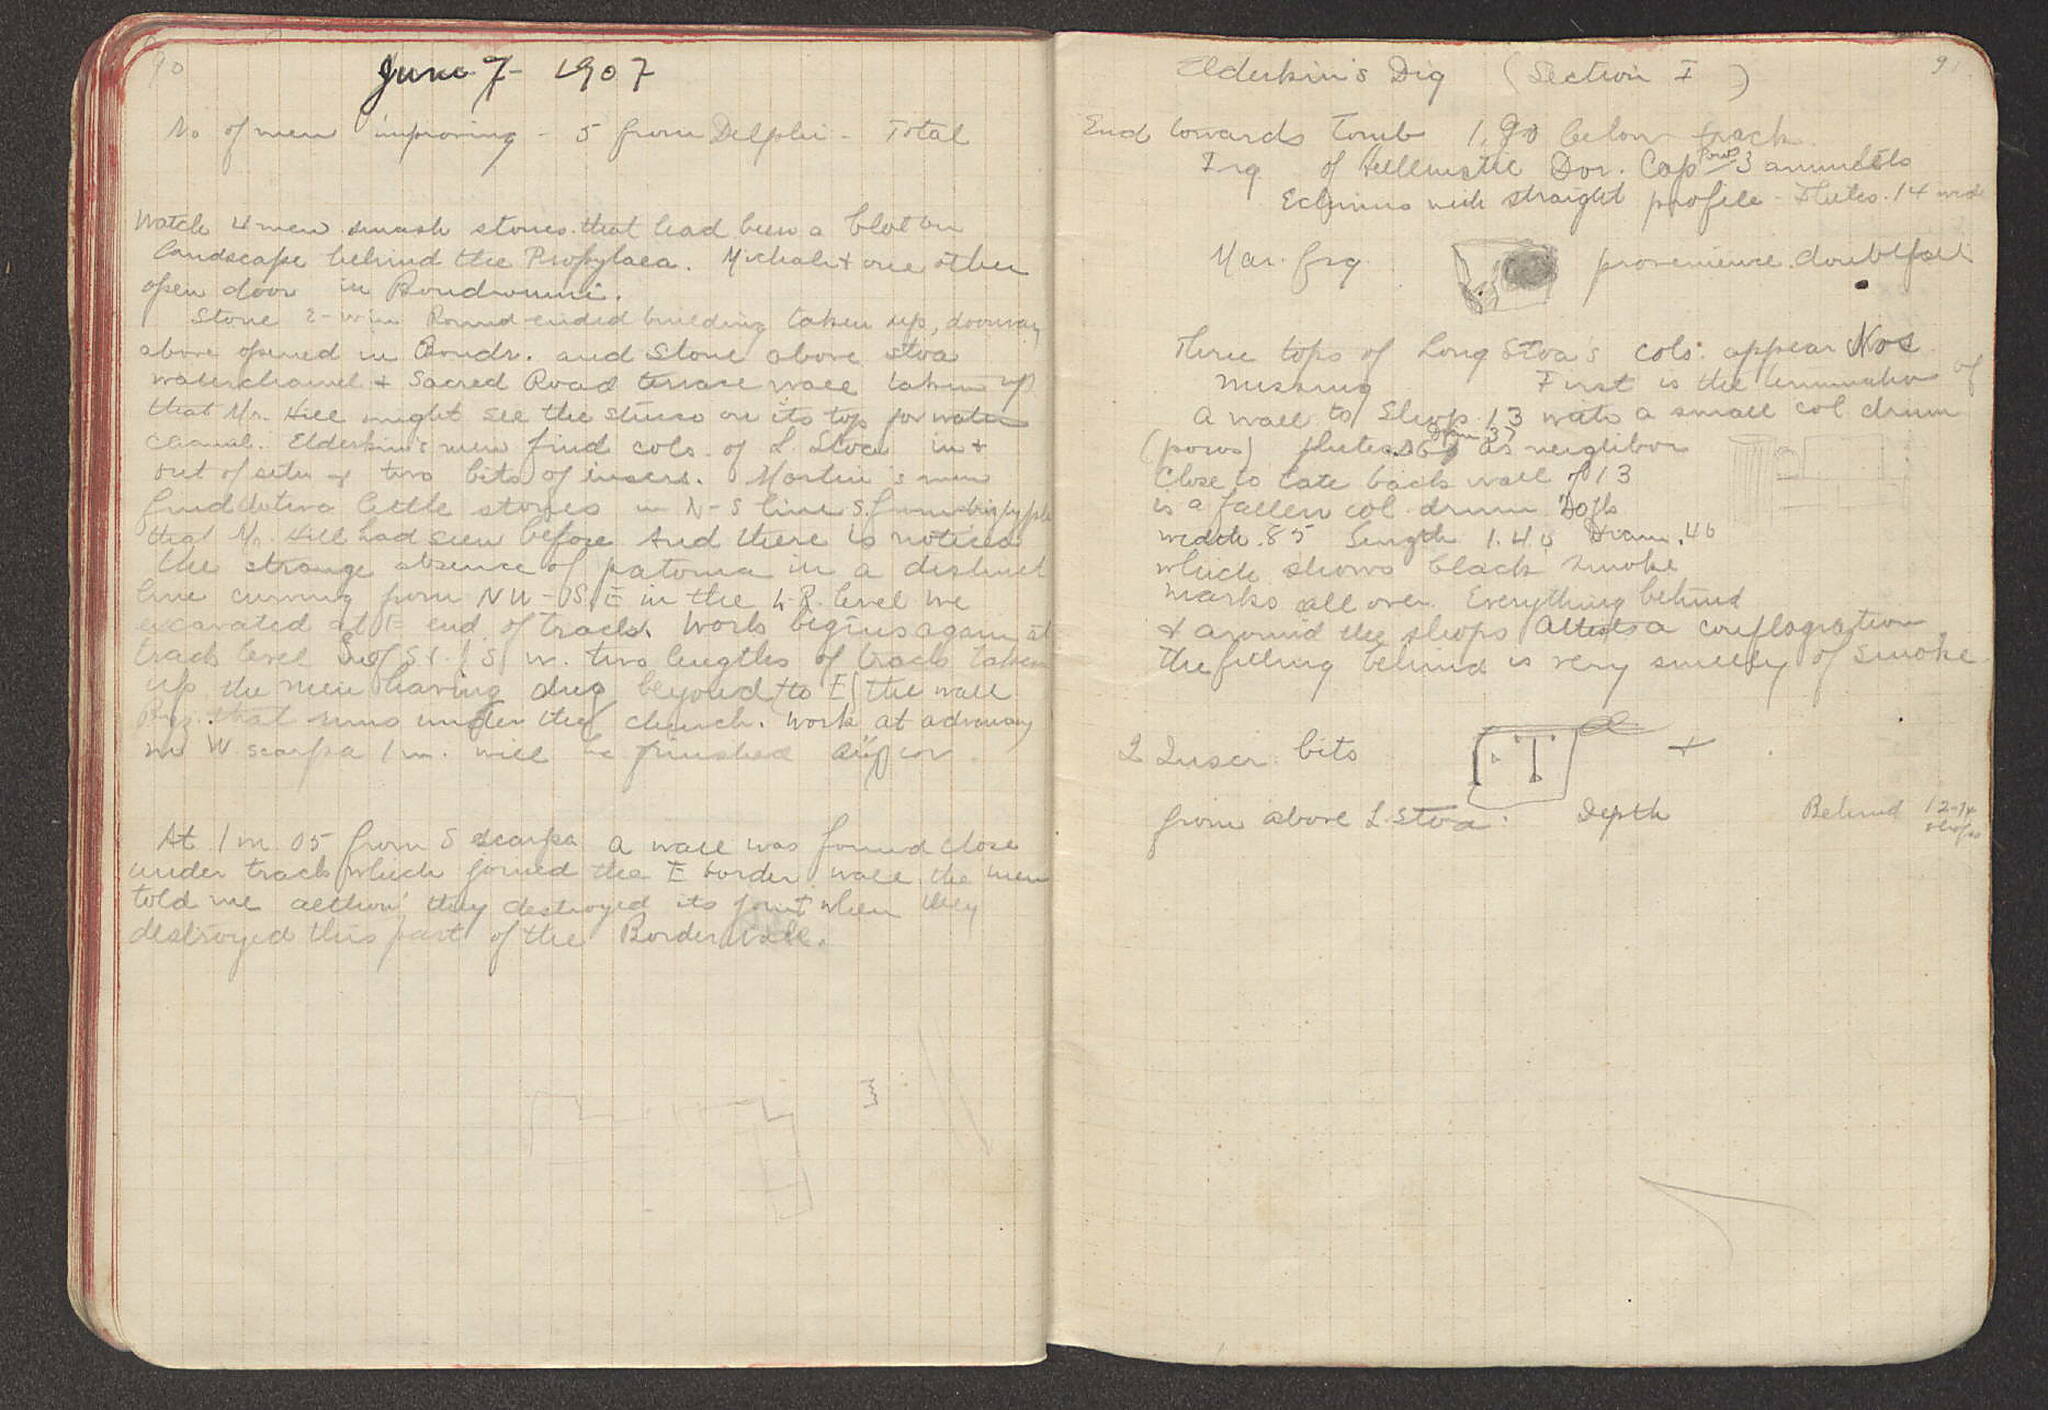 90
June 7 - 1907
No of men improving - 5 from Delphi - Total
Watch 4 men smash stones that had been a blot on
landscape behind the Propylaea. Michali + one other
open door in Boudroumi.
Stone E-W in Round-ended building taken up, doorway
above opened in Boudr. and stone above stoa
waterchannel + Sacred Road terrace wall taken up
that Mr. Hill might see the stucco on its top for water
channel. Elderkin's men find cols. of L. Stoa in +
out of situ + two bits of inscrs. Martin's men
find little stones in N-S line S.
that Mr. Hill had seen before. And there is noticed
the strange absence of patoma in a distinct
line curving from NW - SE in the level we
excavated at E end of track. Work begins again at
track level two lengths of track taken
up the men having dug beyond to E of the wall
that runs under the church. Work at
in W scarpa 1 m. will be finished
At 1 m 05 from S scarpa a wall was found close
under track which joined the E border wall, the men
told me altho' they destroyed its joint when they
destroyed this part of the Border Wall.
91
Elderkin's Dig (Section I )
End towards Tomb 1.90 below track
Frg of Hellenistic Dor. Cap poros 3 annulets
Echinus with straight profile - Flutes .14 wide
Mar. frg provenience doubtful
Three tops of Long Stoa's cols. appear Nos
missing First is the termination of
a wall to Shop 13 with a small col drum
(poros) flutes .06 Diam 37 as neighbor
Close to late back wall of 13
is a fallen col. drum
width .85 Length 1.40 Diam. .46
which shows black smoke
marks all over. Everything behind
+ around the shops attests a conflagration
the filling behind is very smelly of smoke.
2 Inscr. bits +
from above L. Stoa. Depth Behind 12-14
shops